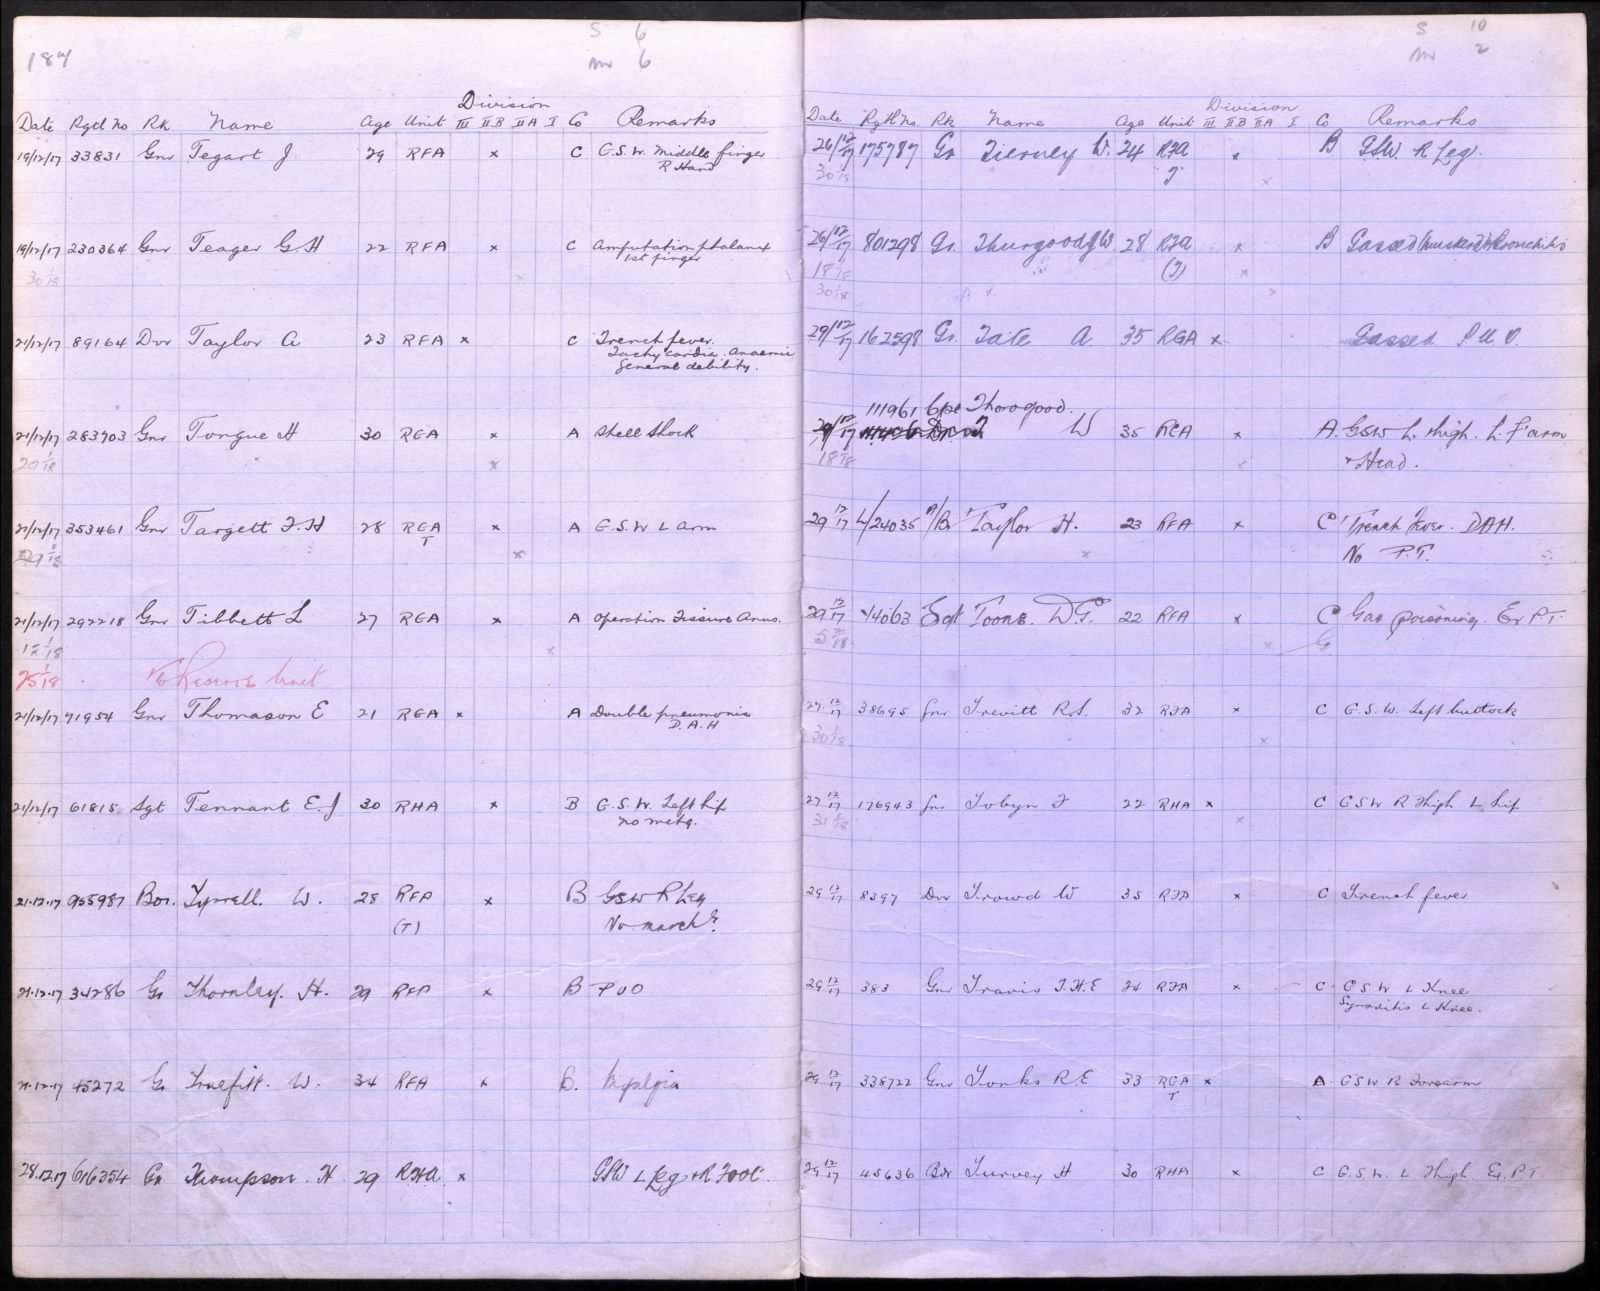 184
S 6
m 6
Division
Date Rgtl No Rk Name Age Unit III II B II A I Co Remarks
19/12/17 33831 Gnr Tegart J 29 RFA x C G.S.W. Middle finger
R Hand
19/12/17 230364 Gnr Teager G.H 22 RFA x C Amputation phalanx
1st finger
30 1/18 x
21/12/17 89164 Dvr Taylor A 23 RFA x C Trench fever.
Tachycardia. Anaemia
General debility.
21/12/17 283903 Gnr Tongue H 30 RGA x A Shell Shock
29 1/18 x
21/12/17 353461 Gnr Targett F.H 28 RGA x A G.S.W L arm
T
x
21/12/17 292218 Gnr Tibbett L 27 RGA x A Operation Fissure Anus.
12 1/18 x
25 1/18 To Reserve Unit
21/12/17 71954 Gnr Thomason E 21 RGA x A Double pneumonia
D.A.H
21/12/17 61815 Sgt Tennant E.J 30 RHA x B G.S.W. Left hip
no metg.
21.12.17 955987 Bor. Tyrrell. W. 28 RFA x B GSW R Leg
(T) No march g
21.12.17 34286 Gr Thornley. H. 29 RFA x B PUO
21.12.17 45272 Gr Truefitt. W. 34 RFA x B. Myalgia
28.12.17 616354 Gr Thompson. H 29 RHA x GSW L Leg + R Foot.
S 10
m 2
Division
Date Rgtl No. Rk Name Age Unit III II B II A I Co Remarks
26/12/17 175787 Gr Tierney W. 24 RFA x B GSW. R Leg.
30 1/18 T x
26/12/17 801298 Gr. Thurgood J W 28 RFA x B Gassed (Mustard) + Bronchitis
18 1/18 (T) x
30 1/18 x
29/12/17 162598 Gr. Tate A 35 RGA x Gassed P.U.O.
111961 Cpl Thorogood.
29/12/17 W 35 RGA x A. GSW L. thigh. L. F'arm
18 1/18 x + Head.
29 12/17 L/24035 A/Br Taylor H. 23 RFA x C Trench Fever. DAH.
x No P.T.
29 12/17 44063 Sgt Toons. D.G. 22 RFA x C Gas poisoning. Ex PT.
x G
27 12/17 38695 Gnr Trevitt R.S. 32 RFA x C G.S.W. Left buttock
30 1/18 x
27 12/17 176943 Gnr Tobyn F 22 RHA x C GSW R Thigh L hip
31 1/18 x
29 12/17 8397 Dvr Trowd W 35 RFA x C Trench fever
29 12/17 383 Gnr Travis T.H.E 24 RFA x C GSW L Knee
Synovitis L Knee.
29 12/17 338722 Gnr Tonks R E 33 RGA x A GSW R Forearm
T
29 12/17 45636 Bdr Turvey H 30 RHA x C G.S.W. L Thigh. Ex. P.T.